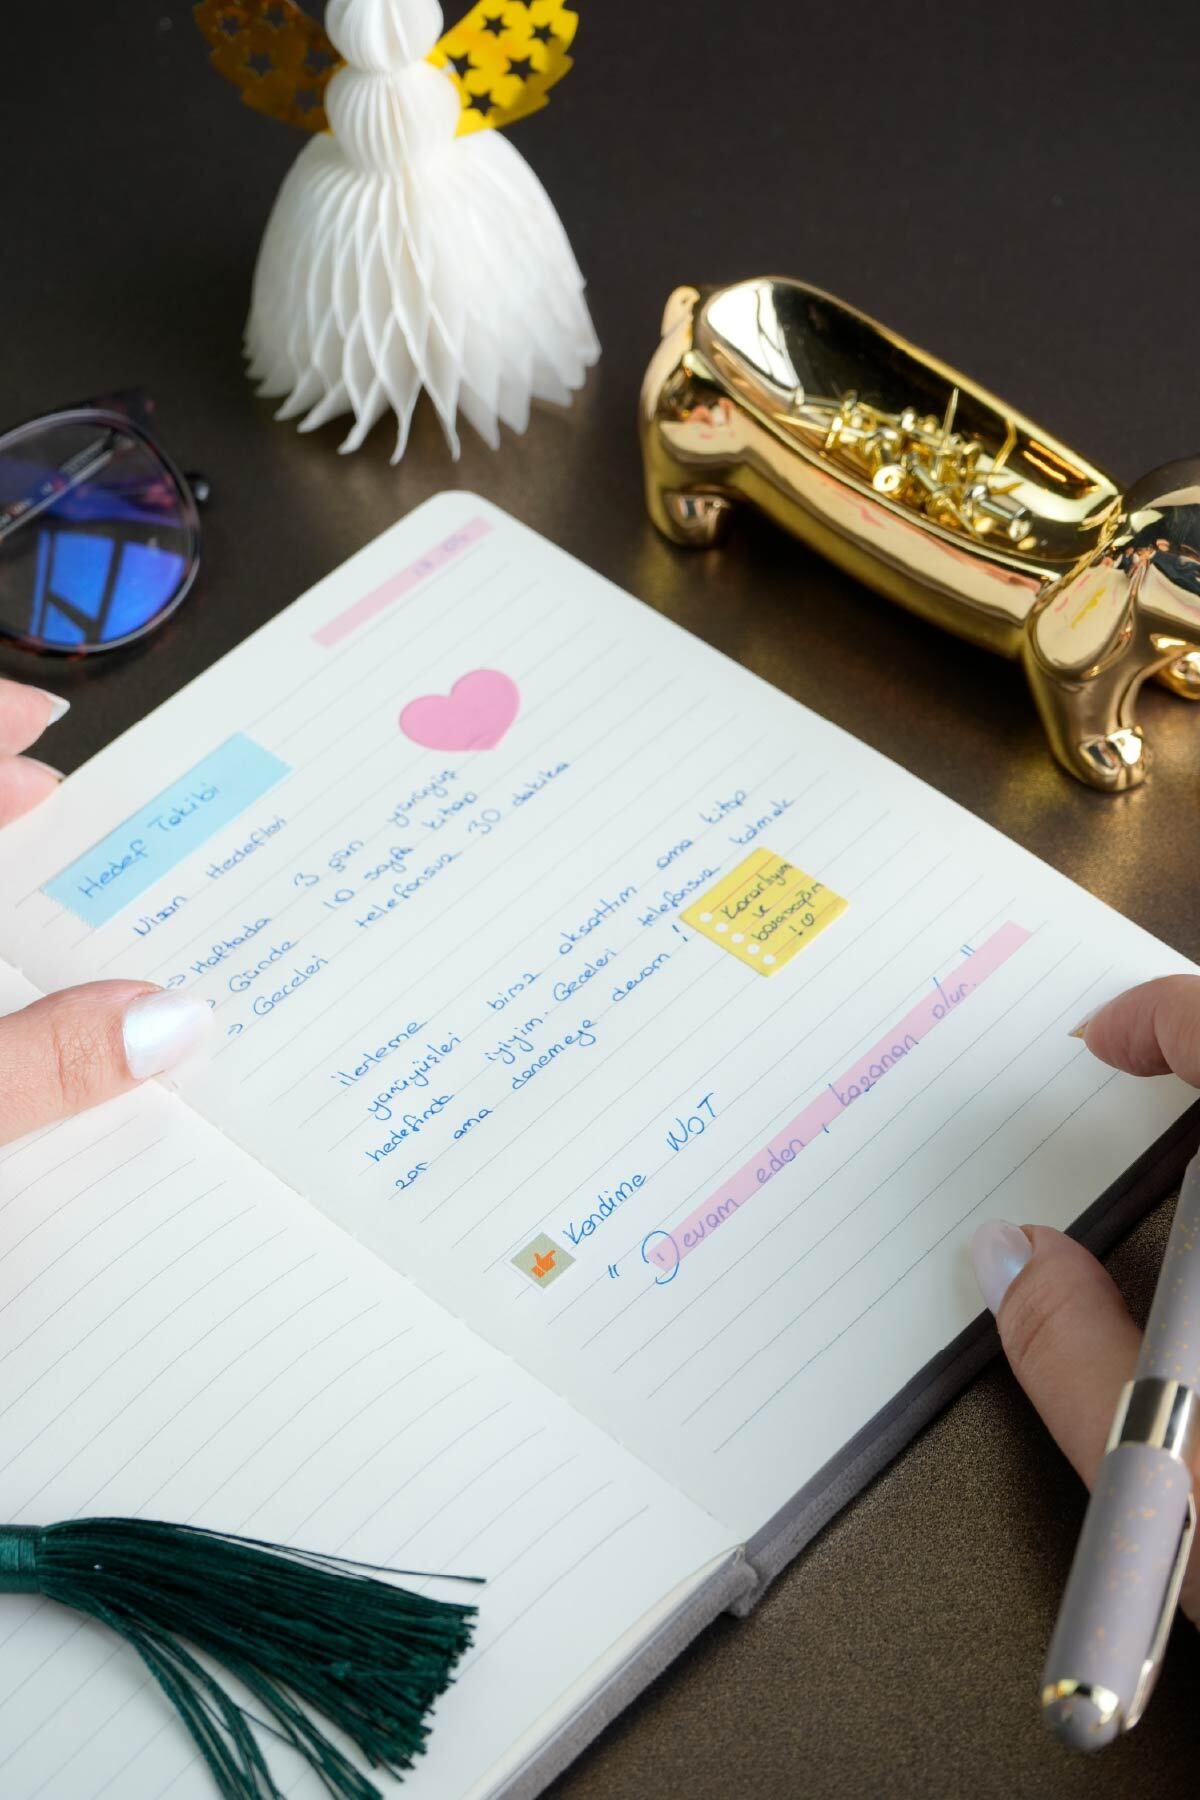 Hedef Takibi
Nisan Hedefleri
→ Haftada 3 gün yürüyüş
→ Günde 10 sayfa kitap
→ Geceleri telefonsuz 30 dakika
ilerleme
yürüyüşleri biraz aksattım ama kitap
hedefinde iyiyim. Geceleri telefonsuz kalmak
zor ama denemeye devam!
Kararlıyım
ve
başaracağım
!
Kendime NOT
"Devam eden, kazanan olur."